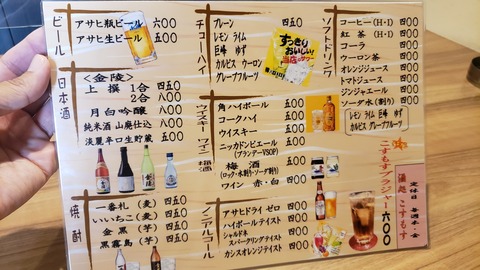 ビール
アサヒ瓶ビール 六〇〇
アサヒ生ビール 五〇〇
日本酒
〈金陵〉
上撰 1合 四五〇
2合 八〇〇
月白吟醸 八〇〇
純米酒 山廃仕込 八〇〇
淡麗辛口生貯蔵 五〇〇
焼酎
一番札(麦) 四五〇
いいちこ(麦) 四五〇
金黒(芋) 四五〇
黒霧島(芋) 四五〇
チューハイ
プレーン
レモン ライム
巨峰 ゆず
カルピス ウーロン
グレープフルーツ
すっきり
おいしい!
当店の
四〇〇
ウイスキー ワイン 梅酒
角ハイボール 五〇〇
コークハイ 五〇〇
ウイスキー 五〇〇
ニッカドンピエール 五〇〇
(ブランデーVSOP)
梅酒 五〇〇
(ロック・水割り・ソーダ割り)
ワイン 赤・白 四〇〇
ノンアルコール
アサヒドライ ゼロ 四〇〇
ハイボールテイスト 四〇〇
シャルドネ
スパークリングテイスト 四〇〇
カシスオレンジテイスト 四〇〇
ソフトドリンク
コーヒー(H・I) 四〇〇
紅茶(H・I) 四〇〇
コーラ 四〇〇
ウーロン茶 四〇〇
オレンジジュース 四〇〇
トマトジュース 四〇〇
ジンジャエール 四〇〇
ソーダ水(割り) 四〇〇
レモン ライム 巨峰 ゆず
カルピス グレープフルーツ
こすもすブラジャー 六〇〇
酒処 こすもす
定休日 毎週木・金